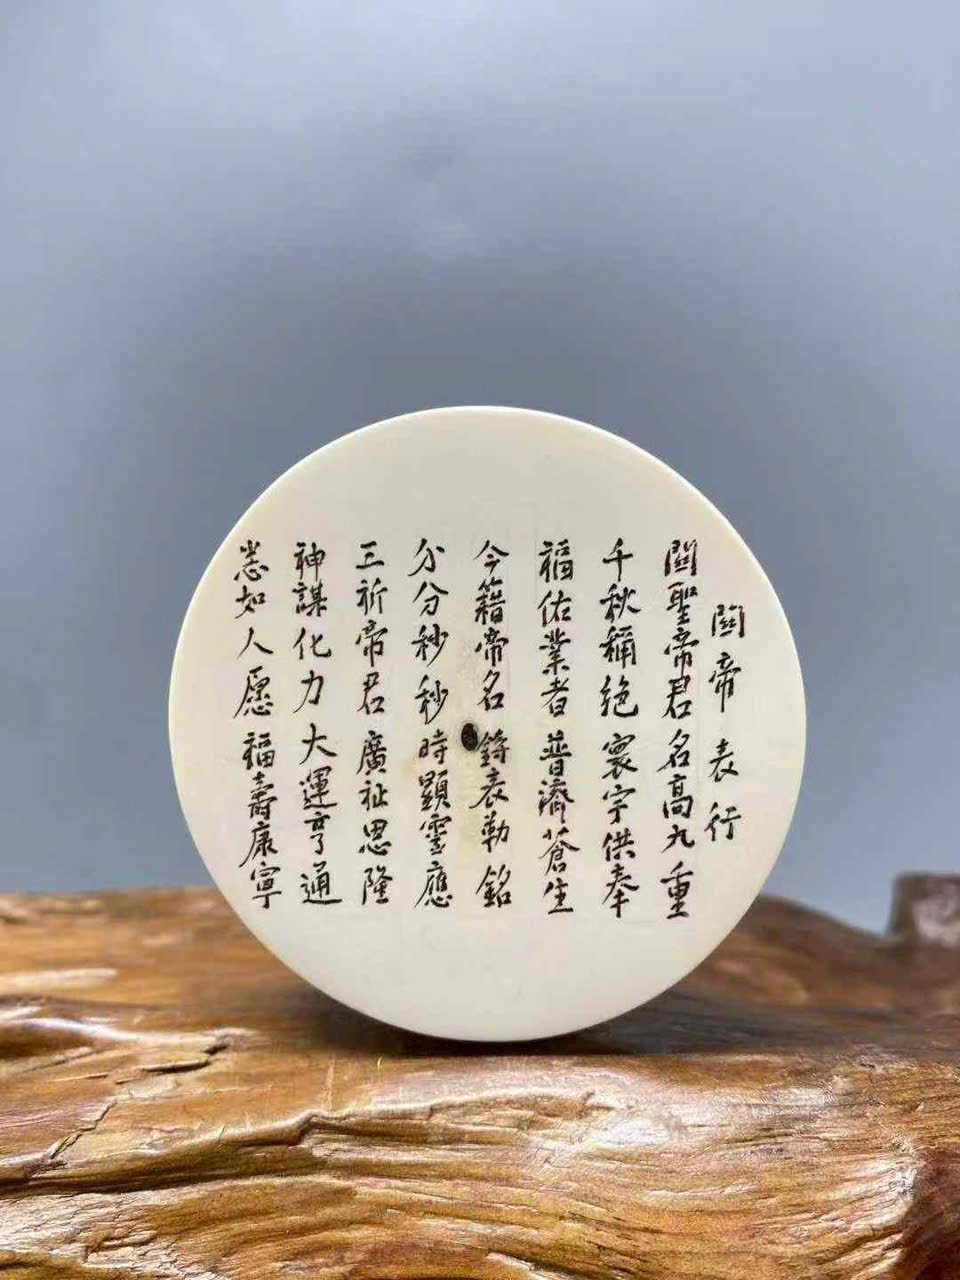 關帝表行
關聖帝君名高九重
千秋稱絶寰宇供奉
福佑業者普濟蒼生
今籍帝名鑄表勒銘
分分秒秒時顯靈應
三祈帝君廣祉恩隆
神謀化力大運亨通
恙如人愿福壽康寧